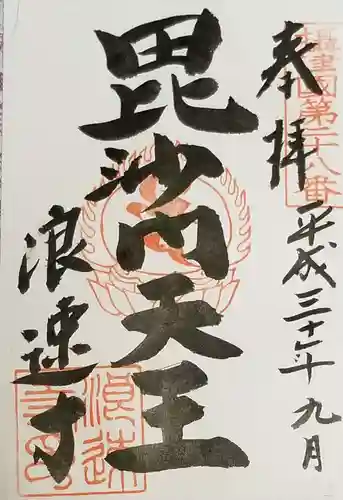 奉拝
平成三十年九月
摂津國第三十八番
毘沙門天王
浪速寺
浪速
寺印